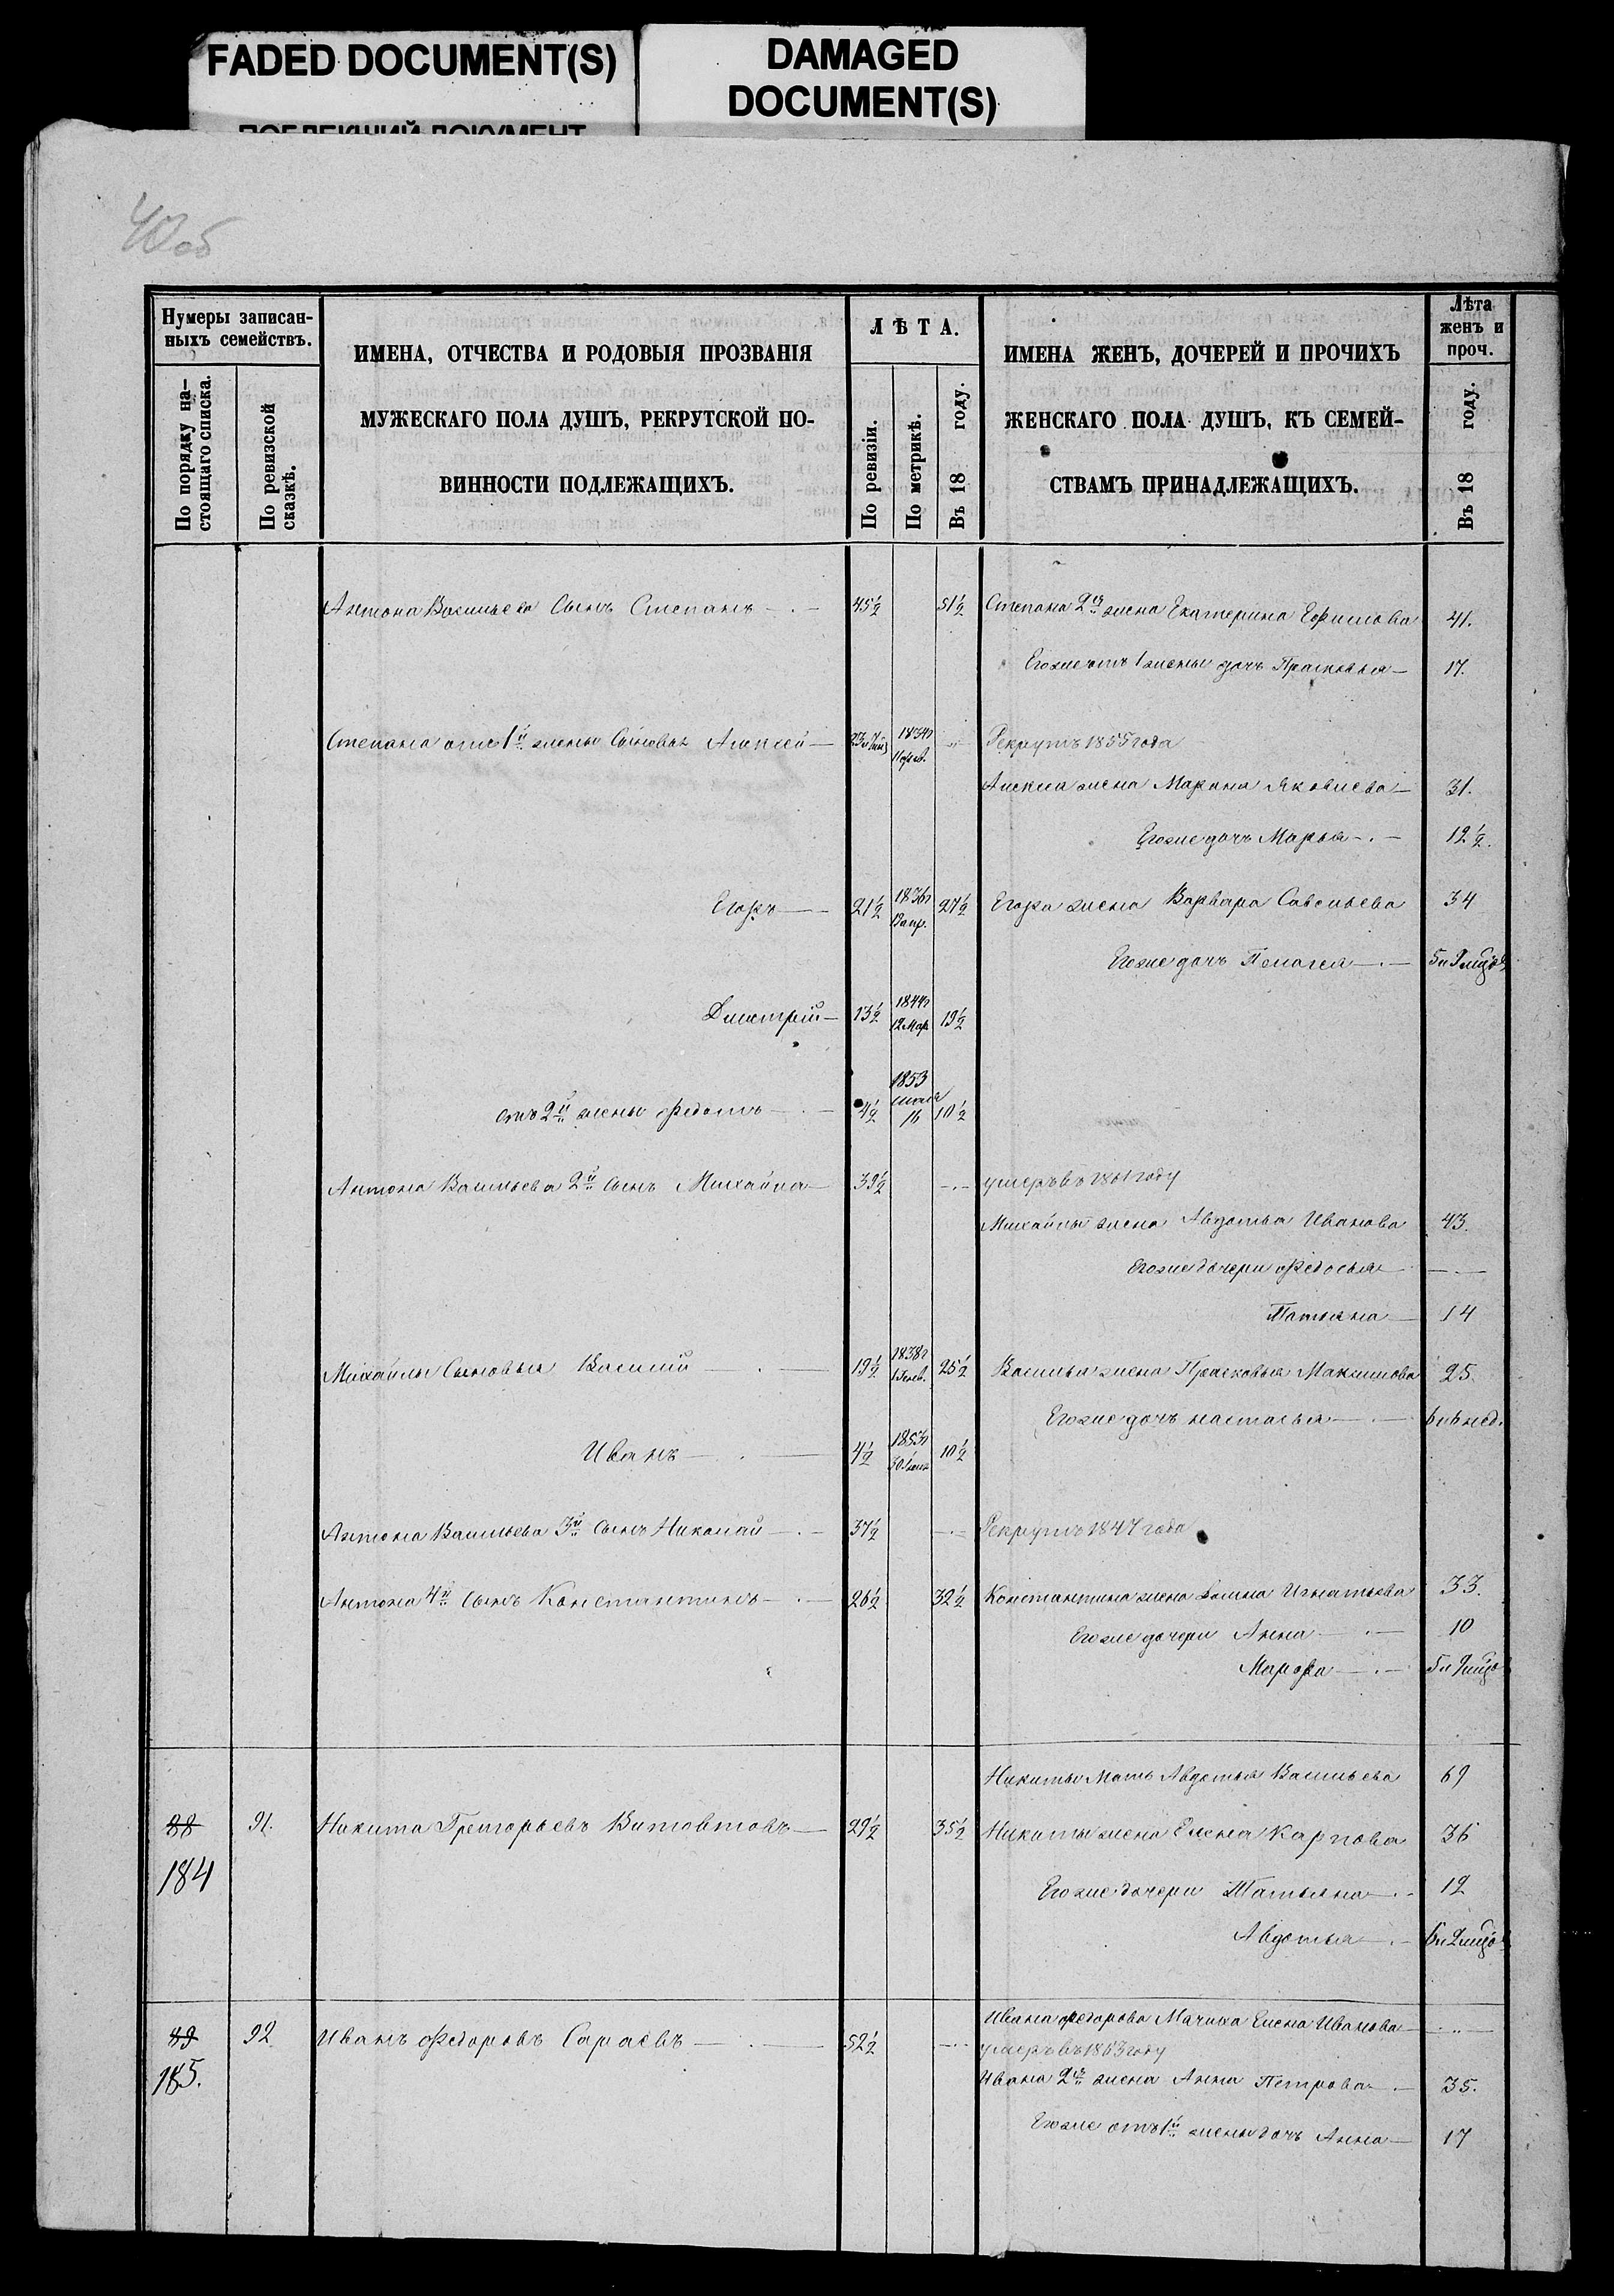 FADED DOCUMENT(S)
DAMAGED
DOCUMENT(S)
ПОБЛЕКШИЙ ДОКУМЕНТ
40 об
Нумеры записан-
ныхъ семействъ.
По порядку на-
стоящаго списка.
По ревизской
сказкѣ.
ИМЕНА, ОТЧЕСТВА И РОДОВЫЯ ПРОЗВАНІЯ
МУЖЕСКАГО ПОЛА ДУШЪ, РЕКРУТСКОЙ ПО-
ВИННОСТИ ПОДЛЕЖАЩИХЪ.
ЛѢТА.
По ревизіи.
По метрикѣ.
Въ 18 году.
ИМЕНА ЖЕНЪ, ДОЧЕРЕЙ И ПРОЧИХЪ
ЖЕНСКАГО ПОЛА ДУШЪ, КЪ СЕМЕЙ-
СТВАМЪ ПРИНАДЛЕЖАЩИХЪ.
Лѣта
женъ и
проч.
Въ 18 году.
Антона Васильева Сынъ Степанъ 45½ 51½ Степана 2я жена Екатерина Ефимова 41.
Егоже отъ 1 жены дочь Прасковья 17.
Степана отъ 1й жены Сыновья Алексей 1834г Рекрутъ 1855 года
Алексея жена Марина Яковлева 31.
Егоже дочь Марья 12½.
Егоръ 21½ 1836г 27½ Егора жена Варвара Савельева 34
Егоже дочь Пелагея
Дмитрій 13½ 1844г 12 Мар 19½
отъ 2й жены Федотъ 4½ 1853 июля 16 10½
Антона Васильева 2й Сынъ Михайла 39½ умеръ въ 1861 году
Михайлы жена Авдотья Иванова 43.
Егоже дочери Федосья
Татьяна 14
Михайлы Сыновья Василий 19½ 1838г 1 Генв. 25½ Василья жена Прасковья Максимова 25.
Егоже дочь настасья 6 и 6 нед.
Иванъ 4½ 1853г 10½
Антона Васильева 3й Сынъ Николай 37½ Рекрутъ 1847 года
Антона 4й Сынъ Константинъ 26½ 32½ Константина жена Домна Игнатьева 33.
Егоже дочери Анна 10
Марфа
Никиты Мать Авдотья Васильева 69
88 91. Никита Григорьевъ Витовтовъ 29½ 35½ Никиты жена Елена Карпова 36
184
Егоже дочери Татьяна 12
Авдотья
89 92 Иванъ Федоровъ Сараевъ 52½ Ивана Федорова Мачиха Елена Иванова
умеръ въ 1863 году
185.
Ивана 2я жена Анна Петрова 35.
Егоже отъ 1й жены дочь Анна 17